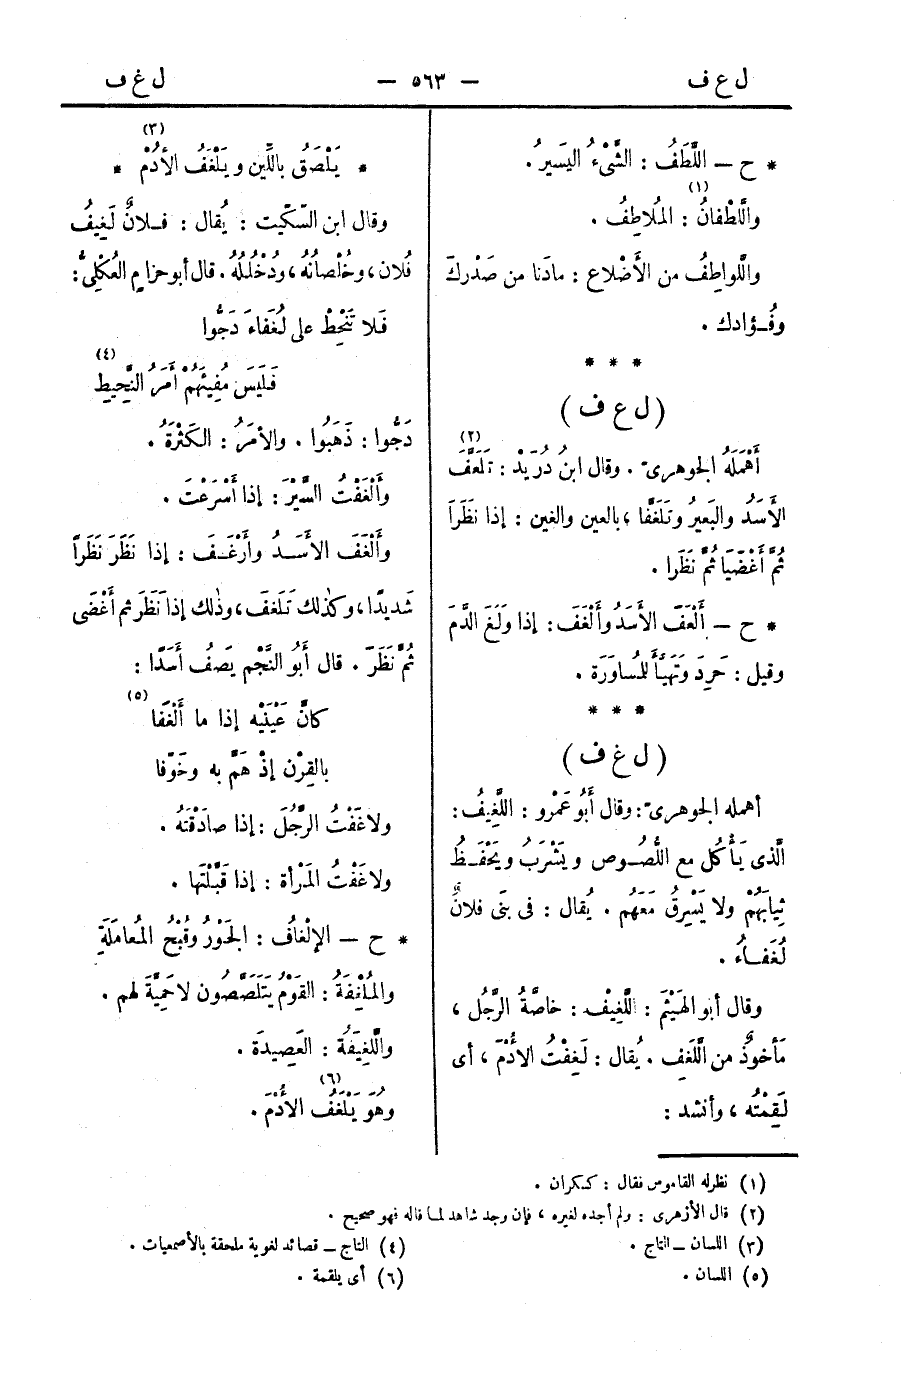 ل ع ف — ٥٦٣ — ل غ ف
* ح — اللَّطَفُ : الشَّيْءُ اليَسيرُ .
واللَّطْفانُ (١) : المُلاطِفُ .
واللَّواطِفُ من الأَضْلاع : مادَنا من صَدْركَ
وفُـؤادك .
* * *
( ل ع ف )
أَهْمَلَهُ الجوهرىّ . وقال ابنُ دُرَيْد (٢) : تَلَعَّفَ
الأَسَدُ والبَعيرُ وتَلَغَّفَا ، بالعين والغين : إذا نَظَرَا
ثُمَّ أَغْضَيَا ثُمَّ نَظَرا .
* ح — أَلْعَفَ الأسَدُ وأَلْغَفَ : إذا وَلَغَ الدَّمَ
وقيل : حَرِدَ وتَهَيَّأَ للمُساوَرَة .
* * *
( ل غ ف )
أهمله الجوهرىّ : وقال أَبُو عَمْرو : اللَّغِيفُ :
الَّذى يَأْكُل مع اللُّصُوص ويَشْرَبُ ويَحْفَـظُ
ثِيابَهُمْ ولا يَسْرِقُ مَعَهُم . يُقال : فى بَنى فلانٌ
لُغَفـاءُ .
وقال أبو الهَيْثَم : اللَّغِيْفـ : خاصَّةُ الرَّجُل ،
مَأخوذٌ من اللَّغَفِ . يُقال : لَغِفْتُ الأدُمَ ، أى
لَقِمْتُه ، وأنشد :
* يَلْصَقُ باللِّين ويَلْغَفُ الأُدُمْ (٣) *
وقال ابن السّكّيت : يُقال : فـلانٌ لَغِيفُ
فُلان ، وخُلْصانُهُ ، ودُخْلُلُهُ . قال أبو حزام العُكْلِىُّ :
فَـلا تَنْحِطْ على لُغَفاءَ دَجُّوا
فَلَيسَ مُفِيئَهُمْ أَمَرُ النَّحِيطِ (٤)
دَجُّوا : ذَهَبُوا . والأمَرُ : الكَثْرَةُ .
وأَلْغَفْتُ السَّيْرَ : إذا أَسْرَعْتَ .
وأَلْغَفَ الأسَـدُ وأَرْغَـفَ : إذا نَظَرَ نَظَراً
شَديدًا ، وكذلك تَلَغفَ ، وذلك إذا نَظَرَ ثم أَغْضَى
ثُمَّ نَظَرَ . قال أَبُو النَّجْم يَصِفُ أَسَدًا :
كانَّ عَيْنَيْه إذا ما أَلْغَفَا (٥)
بالقِرْن إذْ هَمَّ به وخَوَّفا
ولاغَفْتُ الرَّجُلَ : إذا صادَقْتَهُ .
ولاغَفْتُ المَرْأةَ : إذا قَبَّلْتَها .
* ح — الإلْغافُ : الجَوْرُ وقُبْحُ المُعامَلَةِ
والمُلْغِفَةُ : القَوْمُ يَتَلَصَّصُون لا حَمِيَّةَ لهم .
واللَّغِيفَةُ : العَصِيدَةُ .
وهُوَ يَلْغَفُ (٦) الأُدُمَ .
(١) نظر له القاموس فقال : كـكران .
(٢) قال الأزهرى : ولم أجده لغيره ، فإن وجد شاهد لمـا قاله فهو صحيح .
(٣) اللسان — التاج .
(٤) التاج — قصائد لغوية ملحقة بالأصمعيات .
(٥) اللسان .
(٦) أى يلقمة .